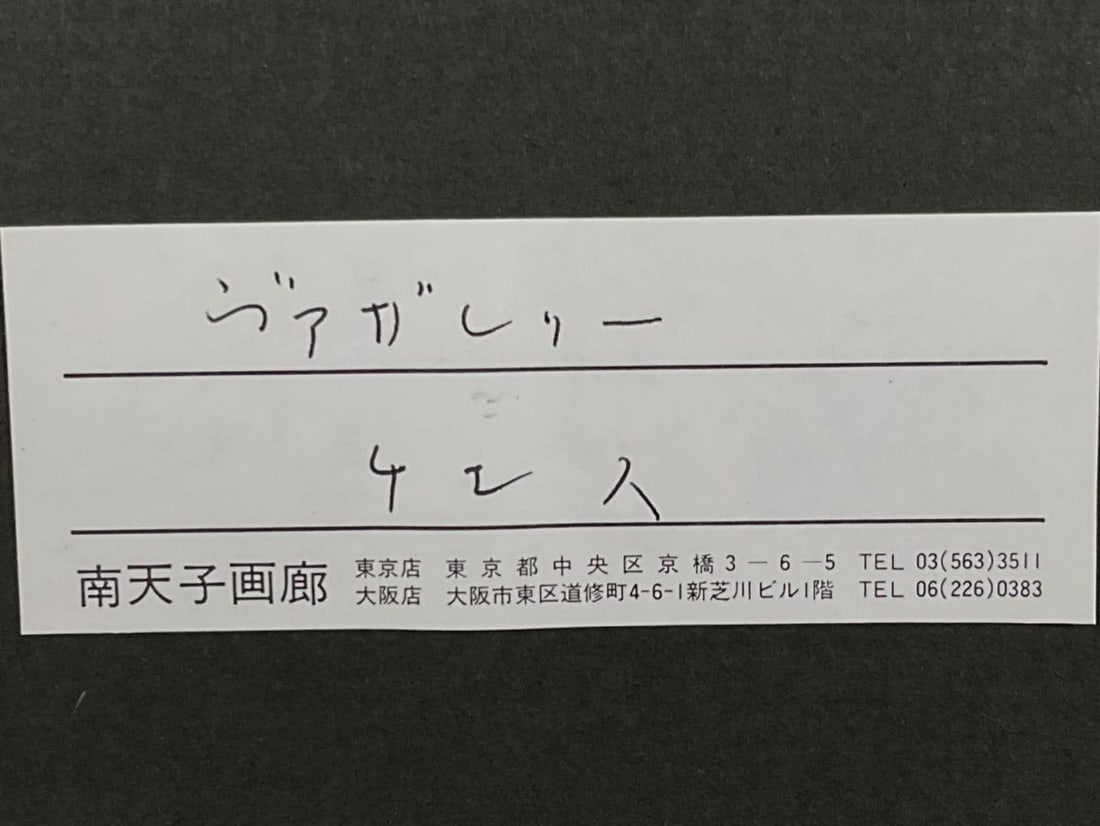 ヴァガレリー
4 ヱ 入
南天子画廊 東京店 東京都中央区京橋3-6-5 TEL 03(563)3511
大阪店 大阪市東区道修町4-6-1新芝川ビル1階 TEL 06(226)0383